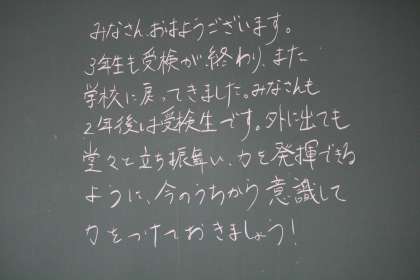 みなさん、おはようございます。
3年生も受検が終わり、また
学校に戻ってきました。みなさんも
2年後は受検生です。外に出ても
堂々と立ち振舞い、力を発揮できる
ように、今のうちから意識して
力をつけておきましょう！